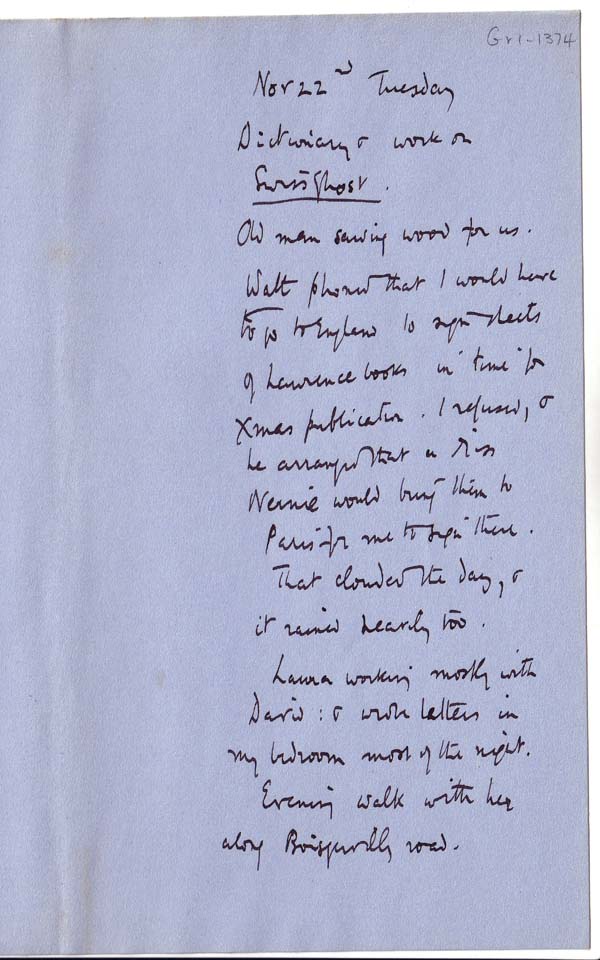 Gr1-1374
Nov 22nd Tuesday
Dictionary & work on
Swiss Ghost.
Old man sawing wood for us.
Watt phoned that I would have
to go to England to sign sheets
of Lawrence books in time for
Xmas publication. I refused, &
he arranged that a Miss
Nernie would bring them to
Paris for me to sign there.
That clouded the day, &
it rained heavily too.
Laura working mostly with
David: & wrote letters in
my bedroom most of the night.
Evening walk with her
along road.